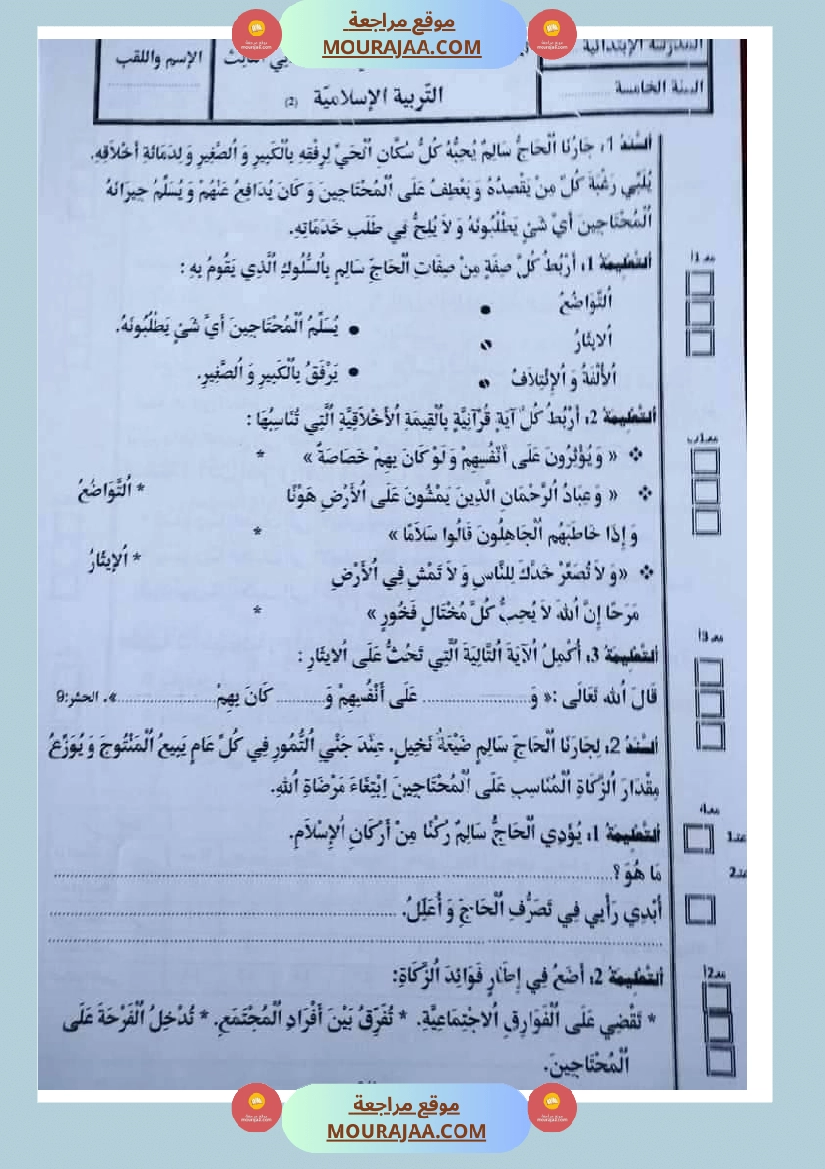 موقع مراجعة
MOURAJAA.COM
المدرسة الإبتدائية
الإسم واللقب
السنة الخامسة
التّربية الإسلاميّة (2)
السّند 1: جَارُنَا الْحَاجُّ سَالِمٌ يُحِبُّهُ كُلُّ سُكَّانِ الْحَيِّ لِرِفْقِهِ بِالْكَبِيرِ وَ الصَّغِيرِ وَ لِدَمَاثَةِ أَخْلَاقِهِ.
يُلَبِّي رَغْبَةَ كُلِّ مِنْ يَقْصِدُهُ وَ يَعْطِفُ عَلَى الْمُحْتَاجِينَ وَ كَانَ يُدَافِعُ عَنْهُمْ وَ يُسَلِّمُ جِيرَانَهُ
الْمُحْتَاجِينَ أَيَّ شَيْءٍ يَطْلُبُونَهُ وَ لاَ يُلِحُّ فِي طَلَبِ خَدَمَاتِهِ.
التعليمة 1: أَرْبُطُ كُلَّ صِفَةٍ مِنْ صِفَاتِ الْحَاجِّ سَالِمٍ بِالسُّلُوكِ الَّذِي يَقُومُ بِهِ :
مع 1أ
التَّوَاضُعُ
يُسَلِّمُ الْمُحْتَاجِينَ أَيَّ شَيْءٍ يَطْلُبُونَهُ.
الايثَارُ
يَرْفَقُ بِالْكَبِيرِ وَ الصَّغِيرِ.
الأُلْفَةُ وَ الإِئْتِلاَفُ
التعليمة 2: أَرْبُطُ كُلَّ آيَةٍ قُرْآنِيَّةٍ بِالْقِيمَةِ الأَخْلاَقِيَّةِ الَّتِي تُنَاسِبُهَا :
مع 1ب
❖ « وَ يُؤْثِرُونَ عَلَى أَنْفُسِهِمْ وَ لَوْ كَانَ بِهِمْ خَصَاصَةٌ » *
❖ « وَ عِبَادُ الرَّحْمَانِ الَّذِينَ يَمْشُونَ عَلَى الأَرْضِ هَوْنًا * التَّوَاضُعُ
وَ إِذَا خَاطَبَهُم الْجَاهِلُونَ قَالُوا سَلاَمًا » *
* الإِيثَارُ
❖ «وَ لاَ تُصَعِّرْ خَدَّكَ لِلنَّاسِ وَ لاَ تَمْشِ فِي الأَرْضِ
مَرَحًا إِنَّ اللهَ لاَ يُحِبُّ كُلَّ مُخْتَالٍ فَخُورٍ » *
التعليمة 3: أُكْمِلُ الآيَةَ التَّالِيَةَ الَّتِي تَحُثُّ عَلَى الايثَارِ :
مع 3أ
قَالَ اللهُ تَعَالَى :« وَ.................... عَلَى أَنْفُسِهِمْ وَ.......... كَانَ بِهِمْ....................». الحشر:9
السّند 2: لِجَارِنَا الْحَاجِّ سَالِمٍ ضَيْعَةُ نَخِيلٍ. عِنْدَ جَنْيِ التُّمُورِ فِي كُلِّ عَامٍ يَبِيعُ الْمَنْتُوجَ وَ يُوَزِّعُ
مِقْدَارَ الزَّكَاةِ الْمُنَاسِبِ عَلَى الْمُحْتَاجِينَ اِبْتِغَاءَ مَرْضَاةِ اللهِ.
مع4
التعليمة 1: يُؤَدِّي الْحَاجُّ سَالِمٌ رُكْنًا مِنْ أَرْكَانِ الإِسْلاَمِ.
مَا هُوَ ؟..........................................................
أُبْدِي رَأْيِي فِي تَصَرُّفِ الْحَاجِّ وَ أُعَلِّلُ. ........................................
..........................................................
التعليمة 2: أَضَعُ فِي إِطَارٍ فَوَائِدَ الزَّكَاةِ:
مع2أ
* تَقْضِي عَلَى الْفَوَارِقِ الاجْتِمَاعِيَّةِ. * تُفَرِّقُ بَيْنَ أَفْرَادِ الْمُجْتَمَعِ. * تُدْخِلُ الْفَرْحَةَ عَلَى
الْمُحْتَاجِينَ.
موقع مراجعة
MOURAJAA.COM